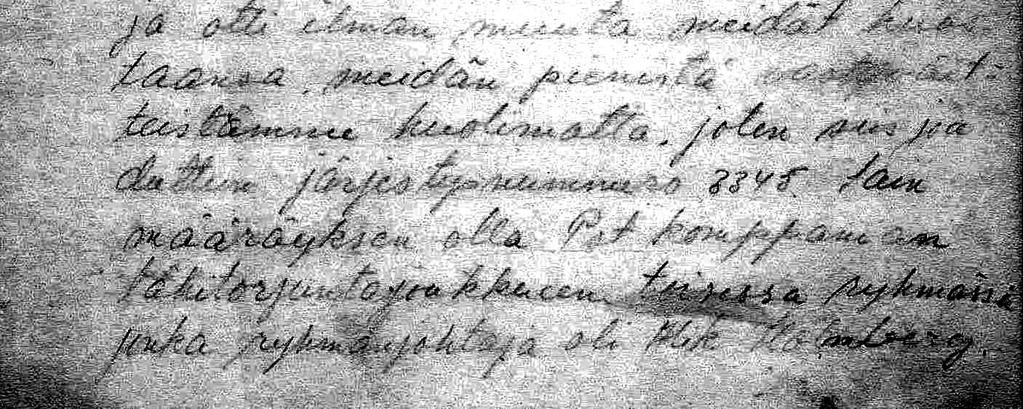 ja otti ilman muuta meidät huos
taansa, meidän pienistä vastaväit
teistämme huolimatta, joten siis jä
dättiin järjestysnummero 3345. Sain
määräyksen olla Pst komppanian
lähitorjuntajoukkueen toisessa ryhmässä
jonka ryhmänjohtaja oli Holmberg.